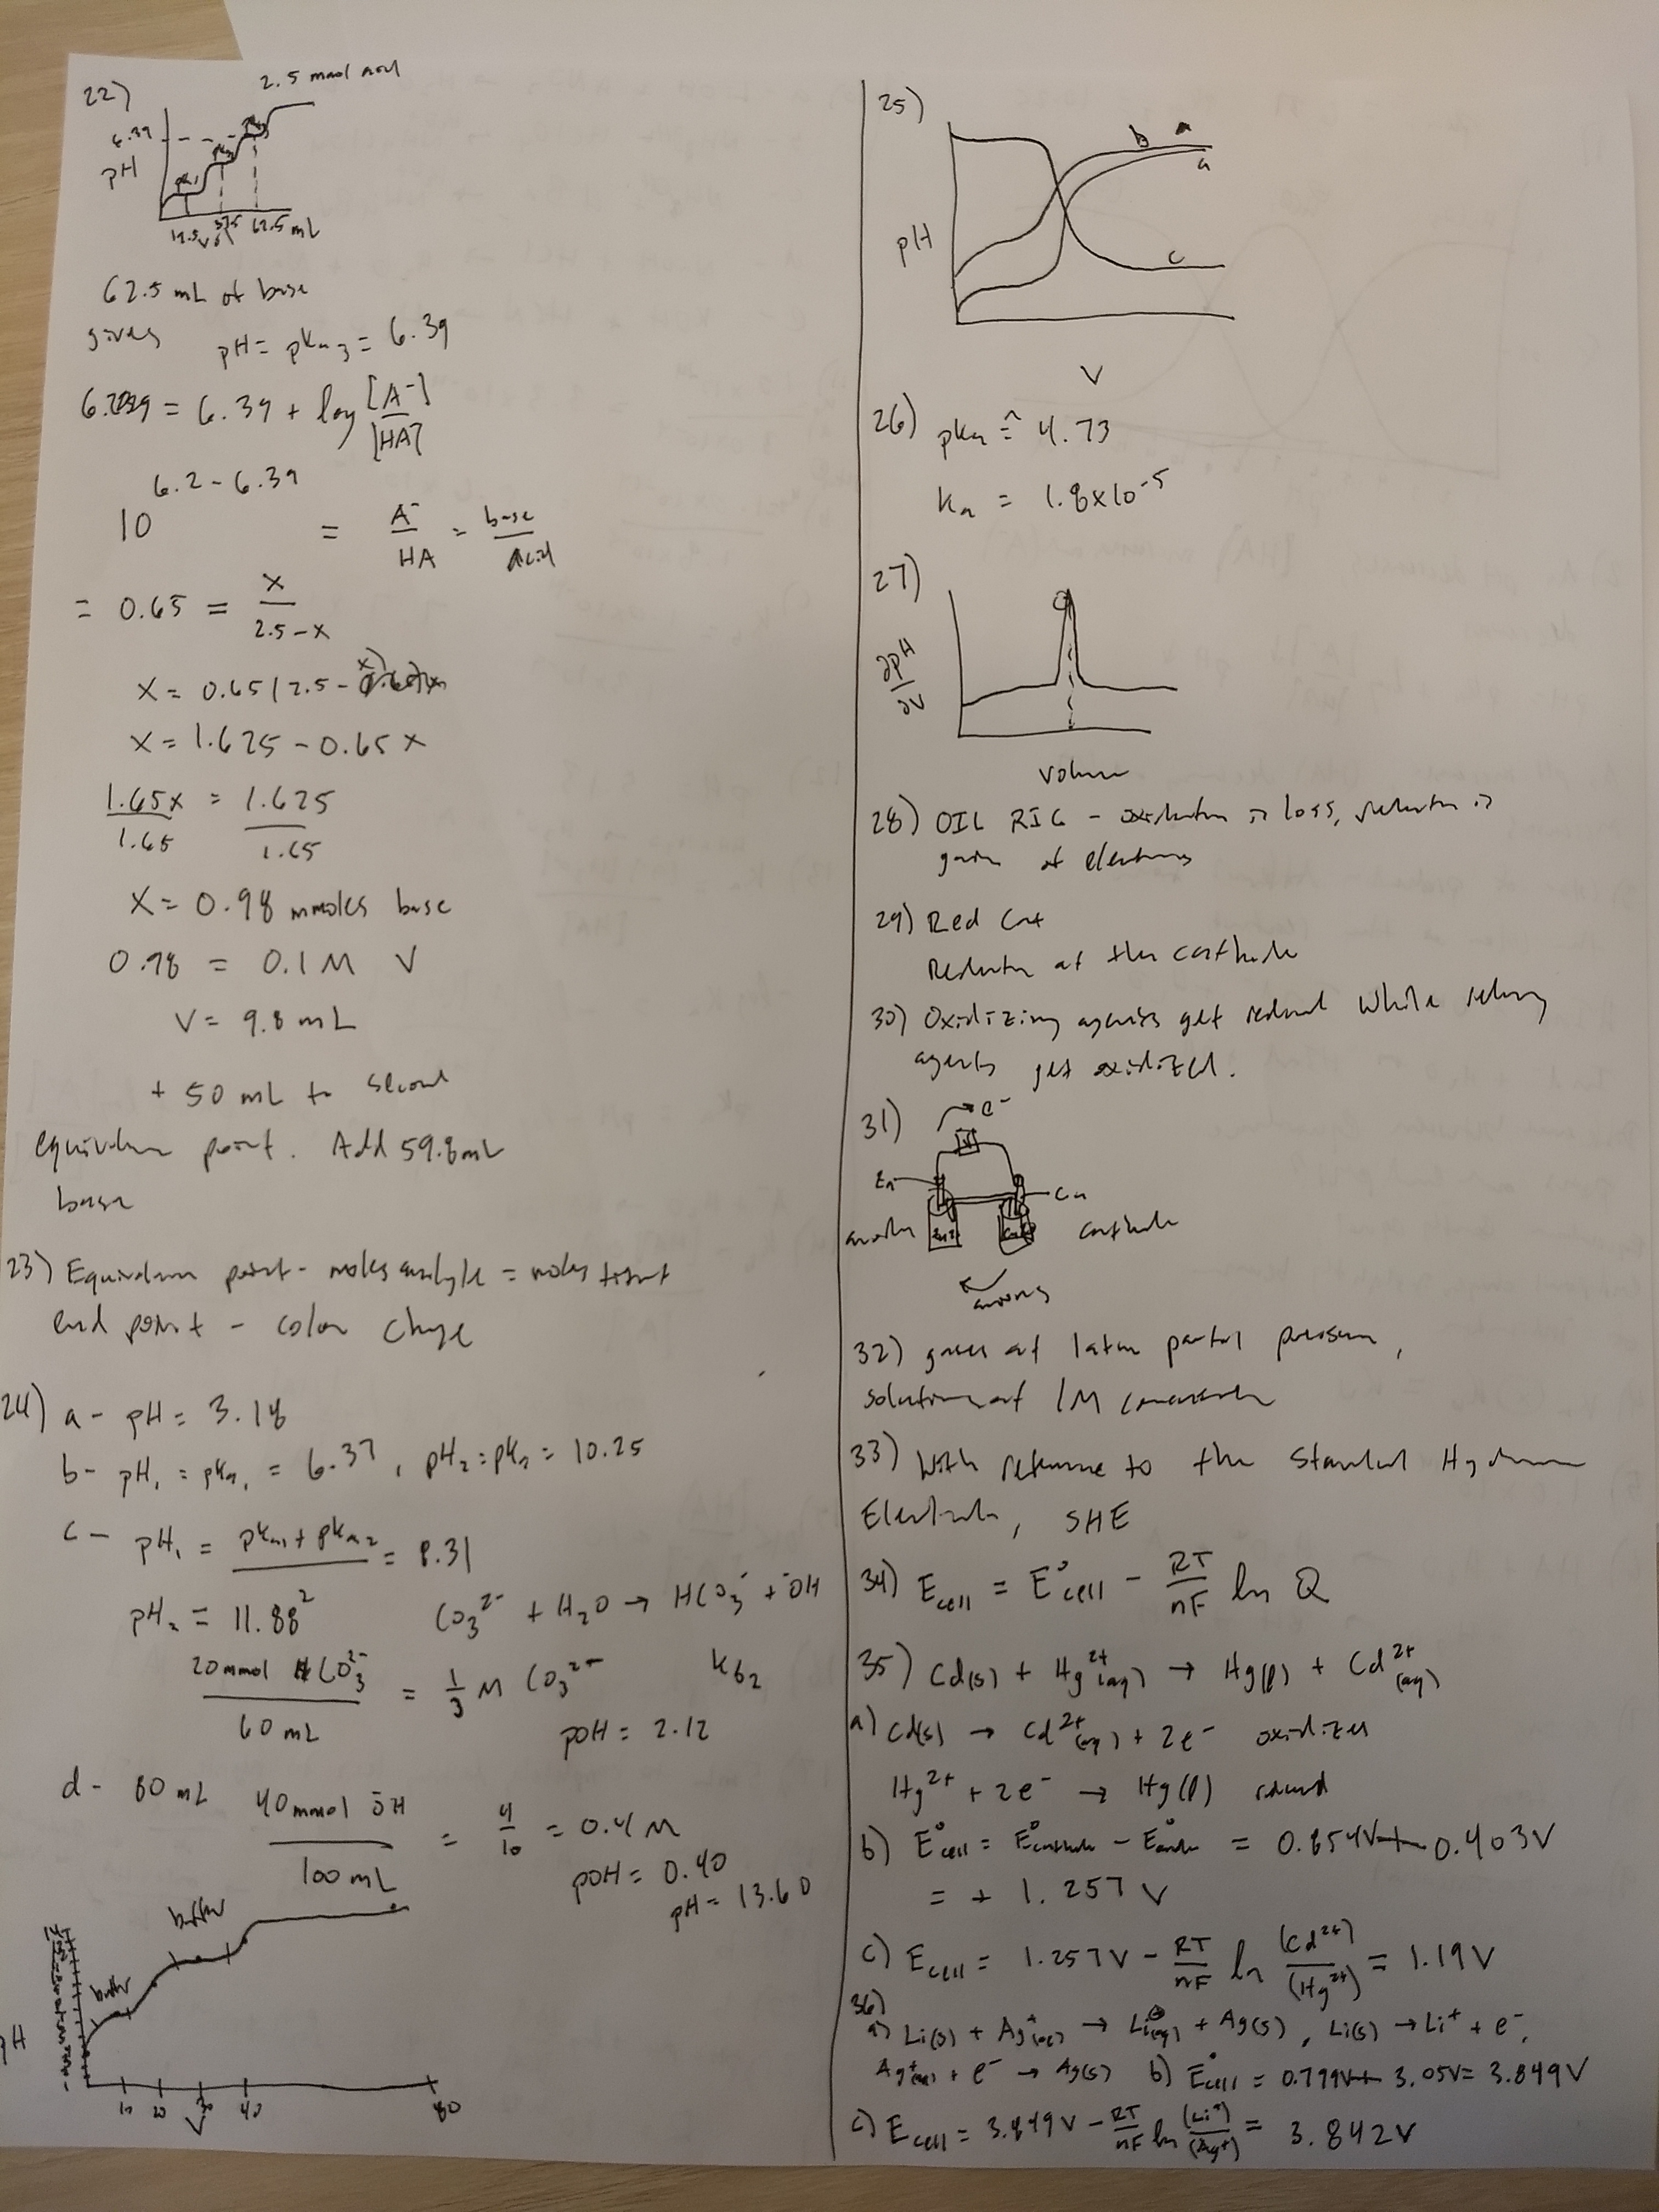 22)
2.5 mmol
6.39
pH
pka1
pka2
12.5
37.5
62.5 mL
62.5 mL of base
gives pH = pka3 = 6.39
= 6.39 + log [A-]
[HA]
6.2 - 6.39
10 = A- = base
HA acid
= 0.65 = x
2.5 - x
x = 0.65(2.5 - x)
x = 1.625 - 0.65x
1.65x = 1.625
1.65 1.65
x = 0.98 mmoles base
0.98 = 0.1 M V
V = 9.8 mL
+ 50 mL to second
equivalence point. Add 59.8 mL
base
23) Equivalence point - moles analyte = moles titrant
end point - color change
24) a - pH = 3.18
b - pH1 = pka1 = 6.37, pH2 = pka = 10.25
c - pH1 = pka1 + pka2 = 8.31
2
pH2 = 11.88 CO3 2- + H2O → HCO3- + -OH
20 mmol CO3 2- = 1/3 M CO3 2- kb2
60 mL pOH = 2.12
d - 80 mL 40 mmol -OH = 4/10 = 0.4 M
100 mL pOH = 0.40
pH = 13.60
buffer
buffer
pH
10 20 30 40 80
V
25)
b a
a
c
pH
V
26) pka ≈ 4.73
ka = 1.8x10-5
27)
∂pH
∂V
volume
28) OIL RIG - oxidation is loss, reduction is
gain of electrons
29) Red Cat
Reduction at the cathode
30) Oxidizing agents get reduced while reducing
agents get oxidized.
31)
e-
V
Zn
Cu
anode
cathode
anions
32) gases at 1 atm partial pressure,
solutions at 1M concentration
33) With reference to the Standard Hydrogen
Electrode, SHE
34) Ecell = E°cell - RT/nF ln Q
35) Cd(s) + Hg2+(aq) → Hg(l) + Cd2+(aq)
a) Cd(s) → Cd2+(aq) + 2e- oxidized
Hg2+ + 2e- → Hg(l) reduced
b) E°cell = E°cathode - E°anode = 0.854V + 0.403V
= + 1.257 V
c) Ecell = 1.257V - RT/nF ln (Cd2+)/(Hg2+) = 1.19V
36)
a) Li(s) + Ag+(aq) → Li+(aq) + Ag(s), Li(s) → Li+ + e-,
Ag+(aq) + e- → Ag(s) b) E°cell = 0.799V + 3.05V = 3.849V
c) Ecell = 3.849V - RT/nF ln (Li+)/(Ag+) = 3.842V